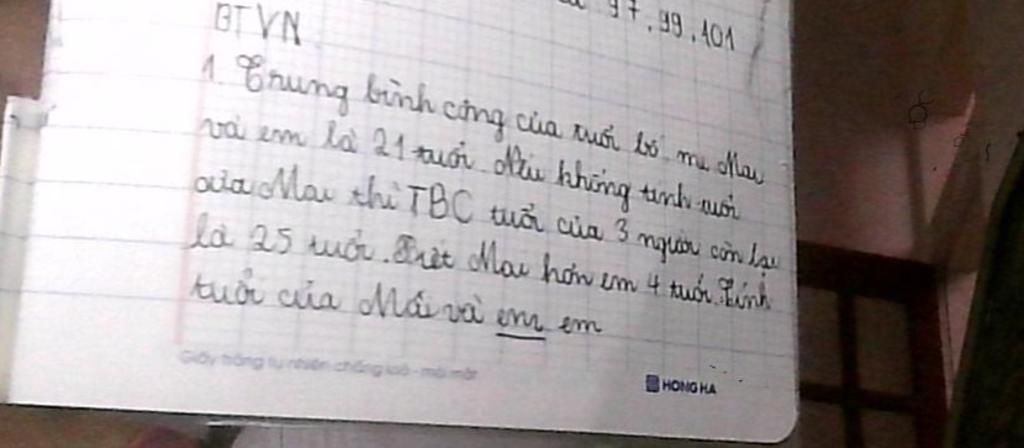 97, 99, 101
BTVN
1. Trung bình cộng của tuổi bố, mẹ, Mai
và em là 21 tuổi. Nếu không tính tuổi
của Mai thì TBC tuổi của 3 người còn lại
là 25 tuổi. Biết Mai hơn em 4 tuổi. Tính
tuổi của Mai và em em
Giấy trắng tự nhiên chống loá - mỏi mắt
HONG HA